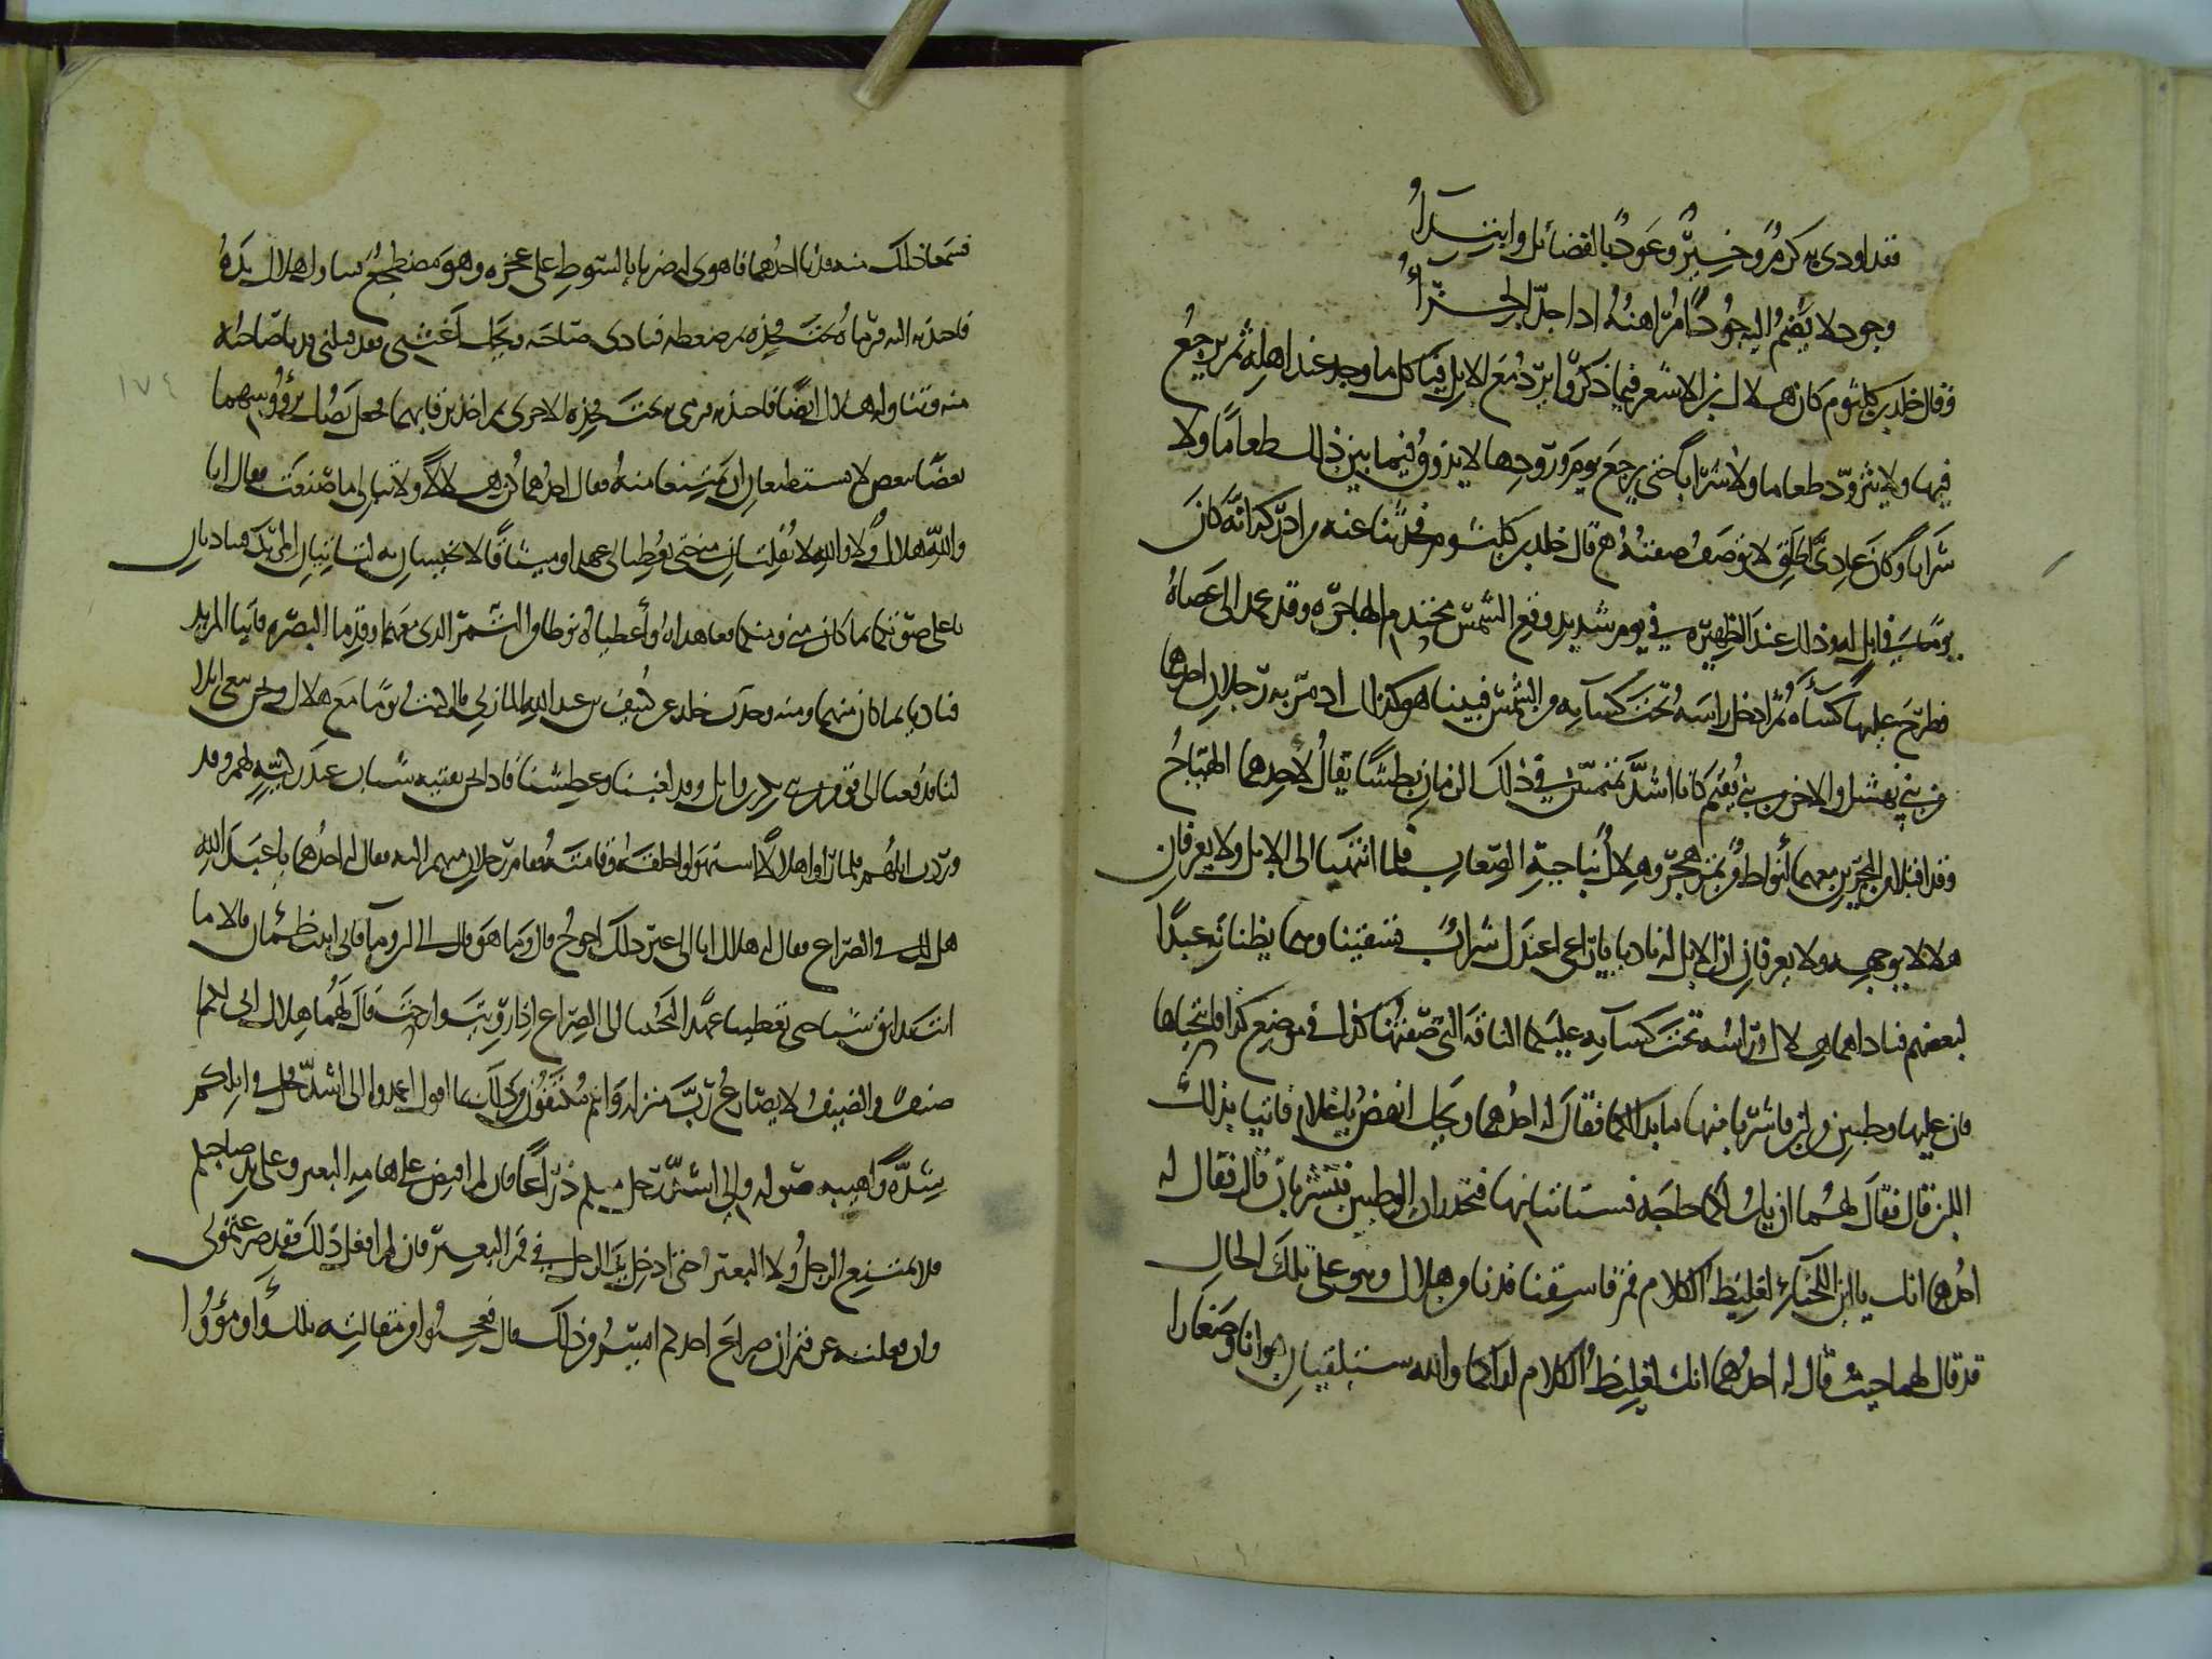 فقد اودى به كرم وخير وعود بالفضائل وابتدا
وجود لا يضم اليه جودا مراهنه اذا جد الجرا
وقال خلد بن كلثوم كان هلال بن الاسعر فيما ذكروا يرد مع الابل فياكل ما وجد عند اهله ثم يرجع
فيها ولا يتزود طعاما ولا شرابا حتى يرجع يوم ورودها لا يذوق فيما بين ذلك طعاما ولا
شرابا وكان عادي الخلق لا توصف صفته قال خلد بن كلثوم فحدثنا عنه من ادركه انه كان
يوما في ابل له وذلك عند الظهيرة في يوم شديد وقع الشمس محتدم الهاجرة وقد عمد الى عصاه
فطرح عليها كساه ثم ادخل راسه تحت كسايه من الشمس فبينا هو كذلك اذ مر به رجلان احدهما
من بني نهشل والاخر من بني فقيم كانا اشد تميميين في ذلك الزمان بطشا يقال لاحدهما الهياج
وقد اقبلا من البحرين معهما انواط من تمر هجر وهلال بناحية الصعاب فلما انتهيا الى الابل ولا يعرفان
هلالا بوجهه ولا يعرفان ان الابل له ناديا يا راعي اعندك شراب تسقينا وهما يظنانه عبدا
لبعضهم فناداهما هلال وراسه تحت كسايه عليكما الناقة التي صفتها كذا في موضع كذا فانتحياها
فان عليها وطبين من لبن فاشربا منها ما بدا لكما فقال له احدهما ويحك انهض يا غلام فاتنا بذلك
اللبن قال فقال لهما ان يك لكما حاجة فستاتيانها فتجدان الوطبين فتشربان قال فقال له
احدهما انك يا ابن اللخناء لغليظ الكلام قم فاسقنا فدنا من هلال وهو على تلك الحال
قد قال لهما حيث قال له احدهما انك لغليظ الكلام اراكما والله ستلقيان هوانا وصغارا
فسمعا ذلك منه فدنا احدهما فاهوى له ضربا بالسوط على عجزه وهو مضطجع فتناول هلال يده
فاجتذبه اليه فرماه تحت فخذه ثم ضغطه فنادى صاحبه ويحك اغثني فقد قتلني فدنا صاحبه
منه فتناوله هلال ايضا فاجتذبه فرمى به تحت فخذه الاخرى ثم اخذ برقابهما فجعل يصك برؤوسهما
بعضا ببعض لا يستطيعان ان يمتنعا منه فقال احدهما كن هلالا ولا نبالي ما صنعت فقال انا
والله هلال ولا والله لا تفلتان مني حتى تعطياني عهدا وميثاقا لا تخيسان به لتاتيان المربد فتناديان
باعلى صوتكما بما كان مني ومنكما فعاهداه واعطياه نوطا من التمر الذي معهما وقدما البصرة فاتيا المربد
فناديا بما كان منهما ومنه وحدث خلد عن كنيف بن عبد الله المازني قال كنت يوما مع هلال ونحن نبغي ابلا
لنا فدفعنا الى قوم من بكر بن وايل وقد لغبنا وعطشنا فاذا نحن بفتية شباب عند ركية لهم وقد
وردت ابلهم فلما راوا هلالا استهولوا خلقه وقامته فقام رجلان منهم اليه فقال له احدهما يا عبد الله
هل لك في الصراع فقال له هلال انا الى غير ذلك احوج قال وما هو قال الى لبن وما فاني لغب ظمان قال ما
انت بذايق شيا حتى تعطينا عهدا لتجيبنا الى الصراع اذا رويت وارحت قال لهما هلال اني لكم
ضيف والضيف لا يصارع رب منزله وانتم مكتفون من ذلك بما اقول اعمدوا الى اشد فحل في ابلكم
شدة واهيبه صولة والى اشد رجل منكم ذراعا فان لم اقبض على هامة البعير وعلى يد صاحبكم
فلا يمتنع الرجل ولا البعير حتى ادخل يد الرجل في فم البعير فان لم افعل ذلك فقد صرعتموني
وان فعلته عرفتم ان صراع احدكم ايسر من ذلك قال فعجبوا من مقالته تلك واومؤوا
١٧٤